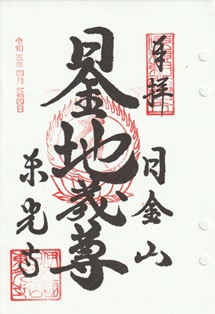 奉拝
日金山
日金地蔵尊
東光寺
令和五年四月廿四日